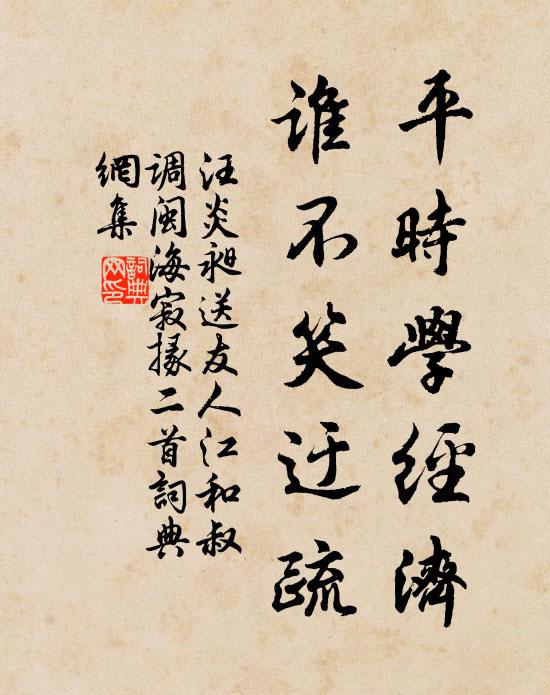 平時學經濟
誰不笑迂疏
汪炎昶送友人江和叔
調閩海寂掾二首詞典
網集
詞典網印